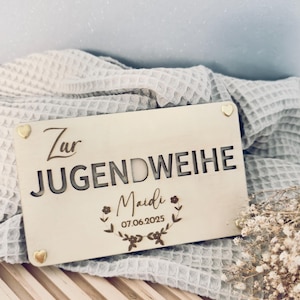 Zur
JUGENDWEIHE
Maidi
07.06.2025